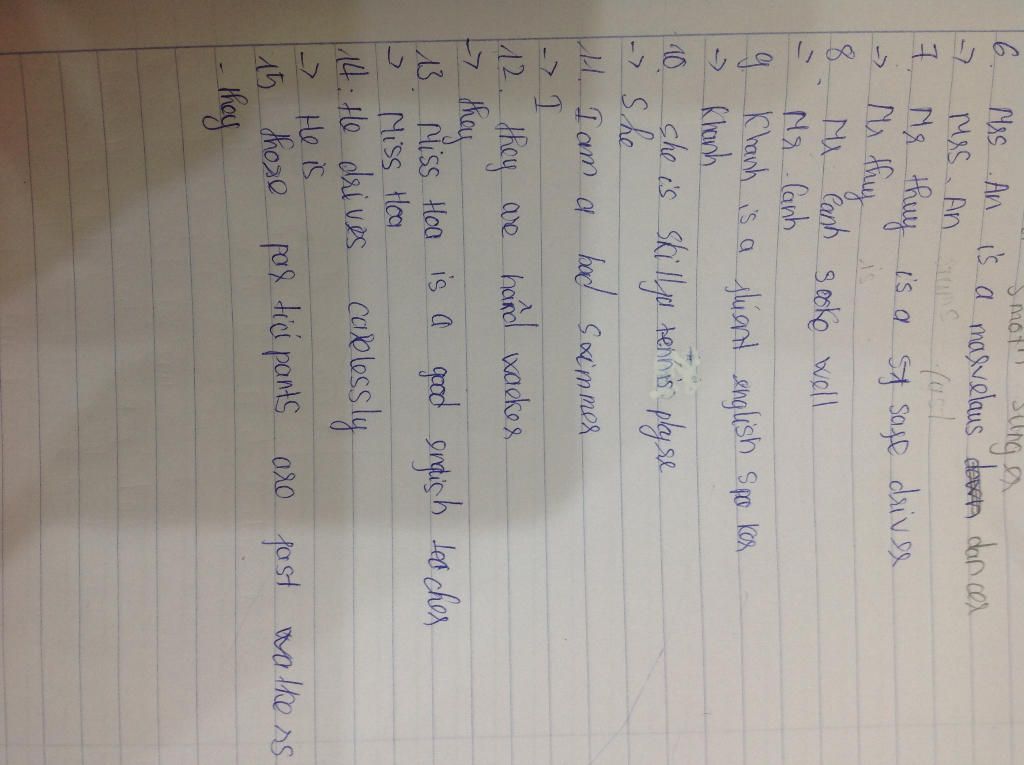 singer
6. Mrs. An is a marvelous dancer
-> Mrs. An
7. Mr thuy is a safe driver
-> Mr thuy is
8. Mr Canh spoke well
-> Mr. Canh
9 Khanh is a fluent english spoker
-> Khanh
10. she is skillfu tennis playse
-> She
11. I am a bad swimmer
-> I
12. they are hard worker
-> they
13. Miss Hoa is a good english teacher
-> Miss Hoa
14. He drives carelessly
-> He is
15 these participants are fast walkers
- they